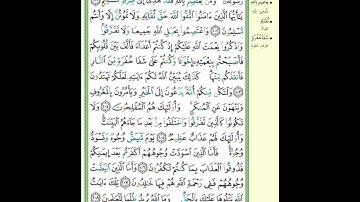 رَسُولُهُۥ وَمَن يَعْتَصِم بِٱللَّهِ فَقَدْ هُدِىَ إِلَىٰ صِرَٰطٍ مُّسْتَقِيمٍ
يَٰٓأَيُّهَا ٱلَّذِينَ ءَامَنُوا۟ ٱتَّقُوا۟ ٱللَّهَ حَقَّ تُقَاتِهِۦ وَلَا تَمُوتُنَّ إِلَّا وَأَنتُم
مُّسْلِمُونَ ١٠٢ وَٱعْتَصِمُوا۟ بِحَبْلِ ٱللَّهِ جَمِيعًا وَلَا تَفَرَّقُوا۟
وَٱذْكُرُوا۟ نِعْمَتَ ٱللَّهِ عَلَيْكُمْ إِذْ كُنتُمْ أَعْدَآءً فَأَلَّفَ بَيْنَ قُلُوبِكُمْ
فَأَصْبَحْتُم بِنِعْمَتِهِۦٓ إِخْوَٰنًا وَكُنتُمْ عَلَىٰ شَفَا حُفْرَةٍ مِّنَ ٱلنَّارِ
فَأَنقَذَكُم مِّنْهَا كَذَٰلِكَ يُبَيِّنُ ٱللَّهُ لَكُمْ ءَايَٰتِهِۦ لَعَلَّكُمْ تَهْتَدُونَ
١٠٣ وَلْتَكُن مِّنكُمْ أُمَّةٌ يَدْعُونَ إِلَى ٱلْخَيْرِ وَيَأْمُرُونَ بِٱلْمَعْرُوفِ
وَيَنْهَوْنَ عَنِ ٱلْمُنكَرِ وَأُو۟لَٰٓئِكَ هُمُ ٱلْمُفْلِحُونَ ١٠٤ وَلَا
تَكُونُوا۟ كَٱلَّذِينَ تَفَرَّقُوا۟ وَٱخْتَلَفُوا۟ مِنۢ بَعْدِ مَا جَآءَهُمُ ٱلْبَيِّنَٰتُ
وَأُو۟لَٰٓئِكَ لَهُمْ عَذَابٌ عَظِيمٌ ١٠٥ يَوْمَ تَبْيَضُّ وُجُوهٌ وَتَسْوَدُّ
وُجُوهٌ فَأَمَّا ٱلَّذِينَ ٱسْوَدَّتْ وُجُوهُهُمْ أَكَفَرْتُم بَعْدَ إِيمَٰنِكُمْ
فَذُوقُوا۟ ٱلْعَذَابَ بِمَا كُنتُمْ تَكْفُرُونَ ١٠٦ وَأَمَّا ٱلَّذِينَ ٱبْيَضَّتْ
وُجُوهُهُمْ فَفِى رَحْمَةِ ٱللَّهِ هُمْ فِيهَا خَٰلِدُونَ ١٠٧ تِلْكَ ءَايَٰتُ
ٱللَّهِ نَتْلُوهَا عَلَيْكَ بِٱلْحَقِّ وَمَا ٱللَّهُ يُرِيدُ ظُلْمًا لِّلْعَٰلَمِينَ ١٠٨